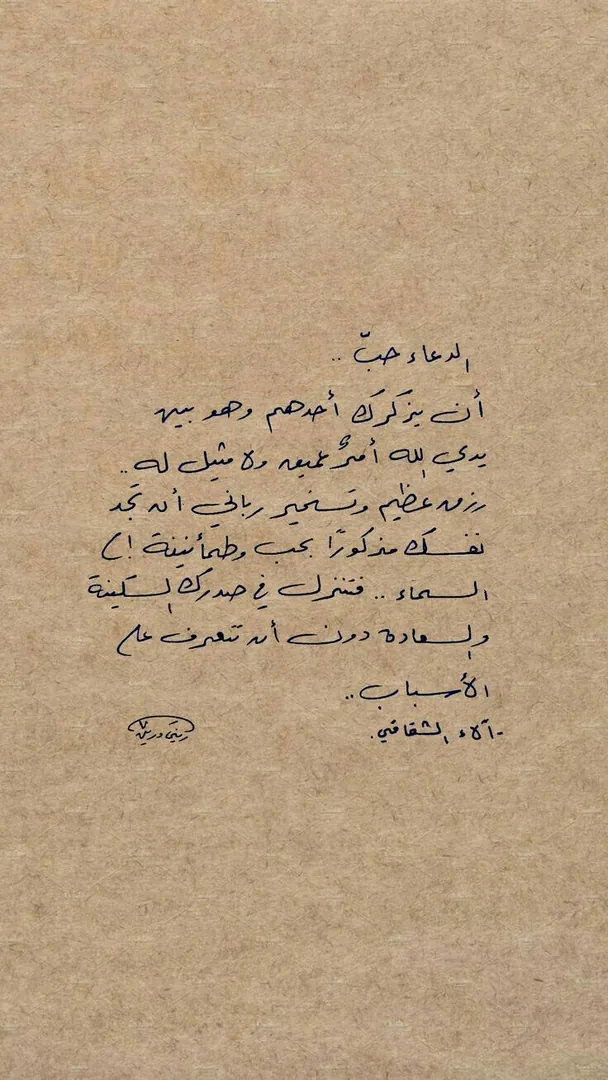 الدعاء حبّ ..
أن يذكرك أحدهم وهو بين
يدي الله أمرٌ عميق ولا مثيل له ..
رزق عظيم وتسخير رباني أن تجد
نفسك مذكورًا بحب وطمأنينة إلى
السماء .. فتنزل في صدرك السكينة
والسعادة دون أن تتعرف على
الأسباب ..
- آلاء الشقاقي.